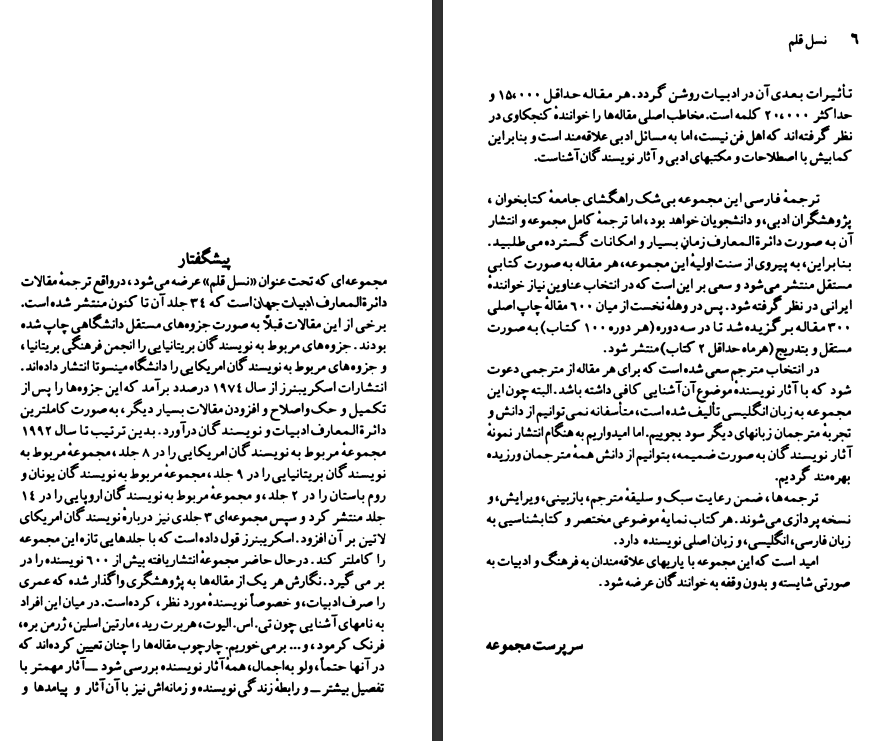 پیشگفتار
مجموعه‌ای که تحت عنوان «نسل قلم» عرضه می‌شود، درواقع ترجمهٔ مقالات
دائرةالمعارف ادبیات جهان است که ۳۴ جلد آن تا کنون منتشر شده است.
برخی از این مقالات قبلاً به صورت جزوه‌های مستقل دانشگاهی چاپ شده
بودند. جزوه‌های مربوط به نویسندگان بریتانیایی را انجمن فرهنگی بریتانیا،
و جزوه‌های مربوط به نویسندگان امریکایی را دانشگاه مینسوتا انتشار داده‌اند.
انتشارات اسکریبنرز از سال ۱۹۷۴ درصدد برآمد که این جزوه‌ها را پس از
تکمیل و حک واصلاح و افزودن مقالات بسیار دیگر، به صورت کاملترین
دائرةالمعارف ادبیات و نویسندگان درآورد. بدین ترتیب تا سال ۱۹۹۲
مجموعهٔ مربوط به نویسندگان امریکایی را در ۸ جلد، مجموعهٔ مربوط به
نویسندگان بریتانیایی را در ۹ جلد، مجموعهٔ مربوط به نویسندگان یونان و
روم باستان را در ۲ جلد، و مجموعهٔ مربوط به نویسندگان اروپایی را در ۱۴
جلد منتشر کرد و سپس مجموعه‌ای ۳ جلدی نیز دربارهٔ نویسندگان امریکای
لاتین بر آن افزود. اسکریبنرز قول داده است که با جلدهایی تازه این مجموعه
را کاملتر کند. درحال حاضر مجموعهٔ انتشاریافته بیش از ۶۰۰ نویسنده را در
بر می‌گیرد. نگارش هر یک از مقاله‌ها به پژوهشگری واگذار شده که عمری
را صرف ادبیات، و خصوصاً نویسندهٔ مورد نظر، کرده‌است. در میان این افراد
به نامهای آشنایی چون تی. اس. الیوت، هربرت رید، مارتین اسلین، ژرمن بره،
فرنک کرمود، و... برمی‌خوریم. چارچوب مقاله‌ها را چنان تعیین کرده‌اند که
در آنها حتماً، ولو به‌اجمال، همهٔ آثار نویسنده بررسی شود ــ آثار مهمتر با
تفصیل بیشتر ــ و رابطهٔ زندگی نویسنده و زمانه‌اش نیز با آن آثار و پیامدها و
۶ نسل قلم
تأثیرات بعدی آن در ادبیات روشن گردد. هر مقاله حداقل ۱۵،۰۰۰ و
حداکثر ۲۰،۰۰۰ کلمه است. مخاطب اصلی مقاله‌ها را خوانندهٔ کنجکاوی در
نظر گرفته‌اند که اهل فن نیست، اما به مسائل ادبی علاقه‌مند است و بنابراین
کمابیش با اصطلاحات و مکتبهای ادبی و آثار نویسندگان آشناست.
ترجمهٔ فارسی این مجموعه بی‌شک راهگشای جامعهٔ کتابخوان،
پژوهشگران ادبی، و دانشجویان خواهد بود، اما ترجمهٔ کامل مجموعه و انتشار
آن به صورت دائرةالمعارف زمان بسیار و امکانات گسترده می‌طلبید.
بنابراین، به پیروی از سنت اولیهٔ این مجموعه، هر مقاله به صورت کتابی
مستقل منتشر می‌شود و سعی بر این است که در انتخاب عناوین نیاز خوانندهٔ
ایرانی در نظر گرفته شود. پس در وهلهٔ نخست از میان ۶۰۰ مقالهٔ چاپ اصلی
۳۰۰ مقاله برگزیده شد تا در سه دوره (هر دوره ۱۰۰ کتاب) به صورت
مستقل و بتدریج (هرماه حداقل ۲ کتاب) منتشر شود.
در انتخاب مترجم سعی شده است که برای هر مقاله از مترجمی دعوت
شود که با آثار نویسندهٔ موضوع آن آشنایی کافی داشته باشد. البته چون این
مجموعه به زبان انگلیسی تألیف شده است، متأسفانه نمی‌توانیم از دانش و
تجربهٔ مترجمان زبانهای دیگر سود بجوییم. اما امیدواریم به هنگام انتشار نمونهٔ
آثار نویسندگان به صورت ضمیمه، بتوانیم از دانش همهٔ مترجمان ورزیده
بهره‌مند گردیم.
ترجمه‌ها، ضمن رعایت سبک و سلیقهٔ مترجم، بازبینی، ویرایش، و
نسخه پردازی می‌شوند. هرکتاب نمایهٔ موضوعی مختصر و کتابشناسیی به
زبان فارسی، انگلیسی، و زبان اصلی نویسنده دارد.
امید است که این مجموعه با یاریهای علاقه‌مندان به فرهنگ و ادبیات به
صورتی شایسته و بدون وقفه به خوانندگان عرضه شود.
سرپرست مجموعه